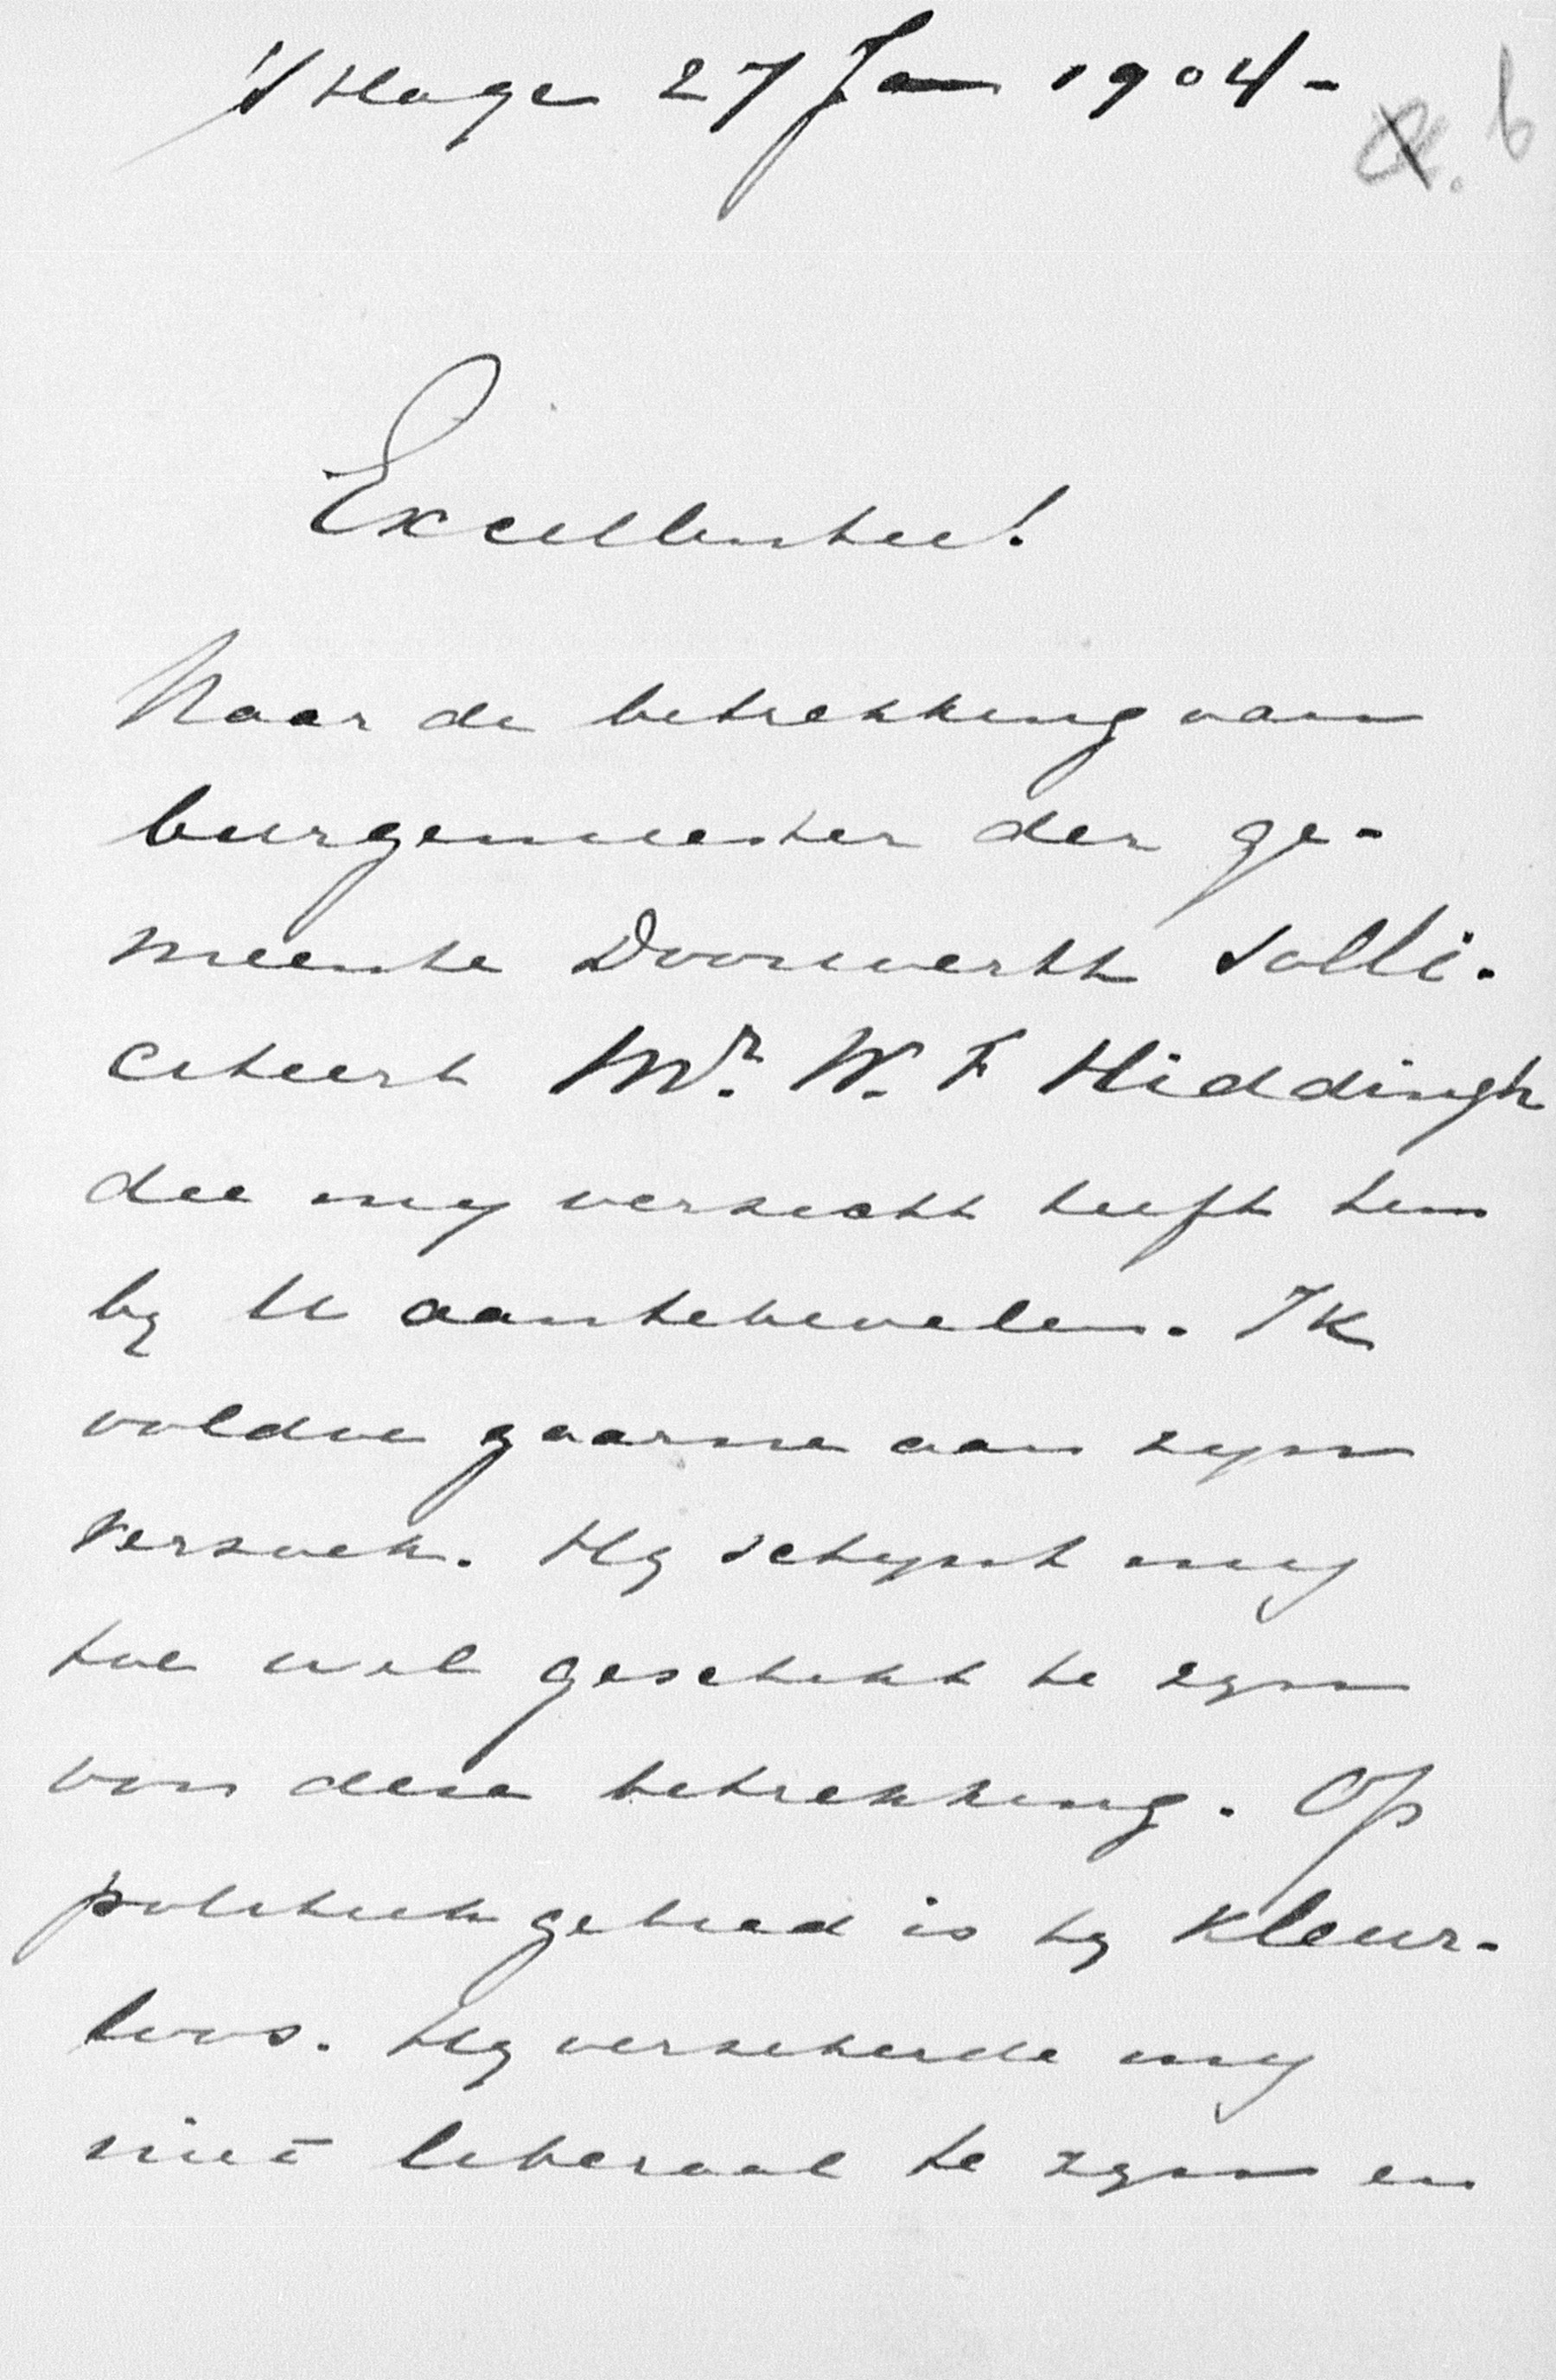 's Hage 27 Jan 1904 -
b
Excellentie!
Naar de betrekking van
burgemeester der ge-
meente Doorwerth solli-
citeert Mr. W. F Hiddingh
die my verzocht heeft hem
by U aantebevelen. Ik
voldoe gaarne aan zyn
verzoek. Hy schynt my
toe wel geschikt te zyn
voor deze betrekking. Op
politiek gebied is hy kleur-
loos. Hy verzekerde my
niet liberaal te zyn en